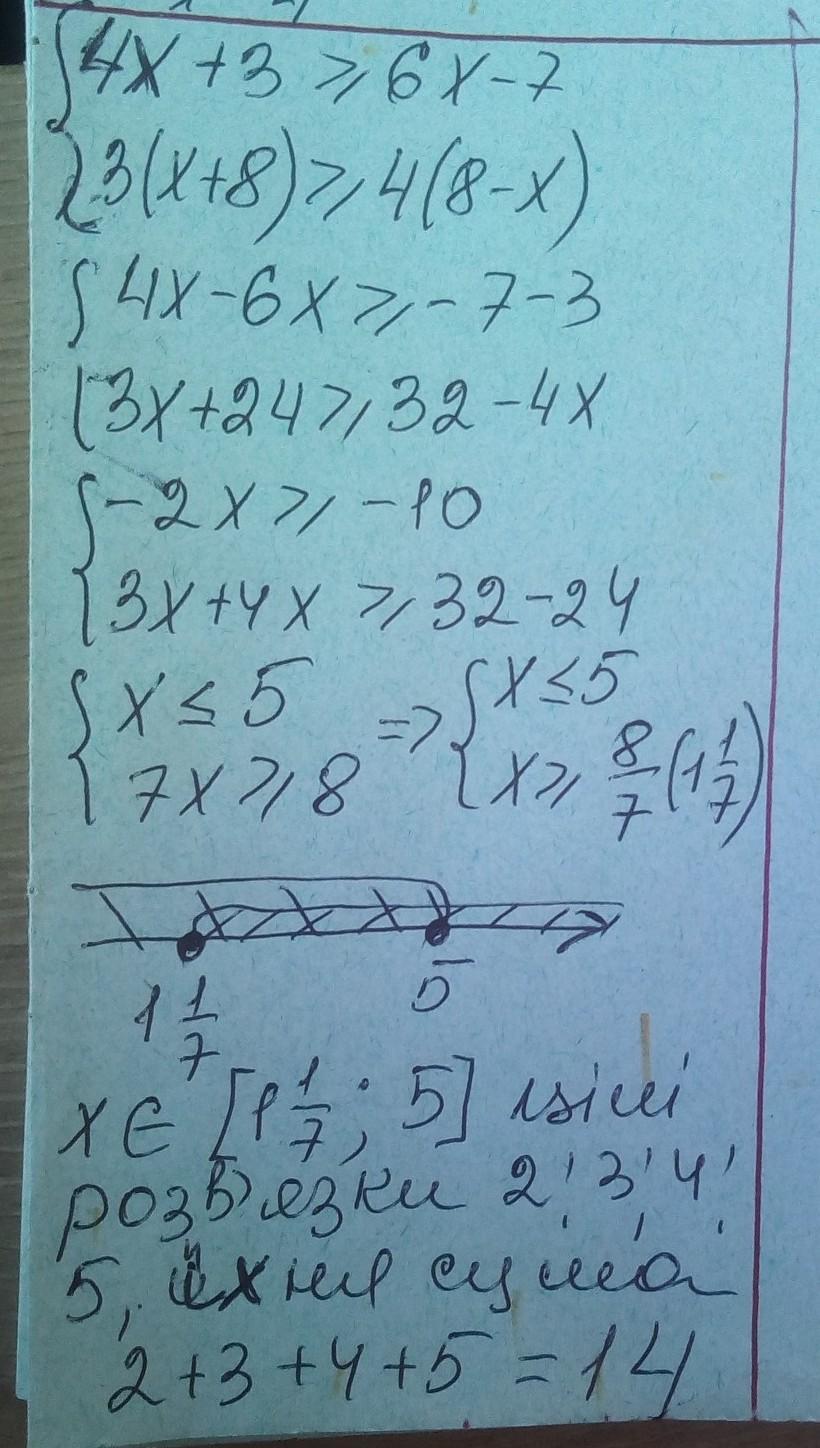 {4x + 3 ⩾ 6x - 7
{3(x+8) ⩾ 4(8-x)
{4x - 6x ⩾ -7-3
{3x+24 ⩾ 32-4x
{-2x ⩾ -10
{3x+4x ⩾ 32-24
{x ≤ 5 => {x ≤ 5
{7x ⩾ 8 {x ⩾ 8/7 (1 1/7)
1 1/7 5
x ∈ [1 1/7; 5] цілі
розв'язки 2; 3; 4;
5, їхня сума
2+3+4+5 = 14